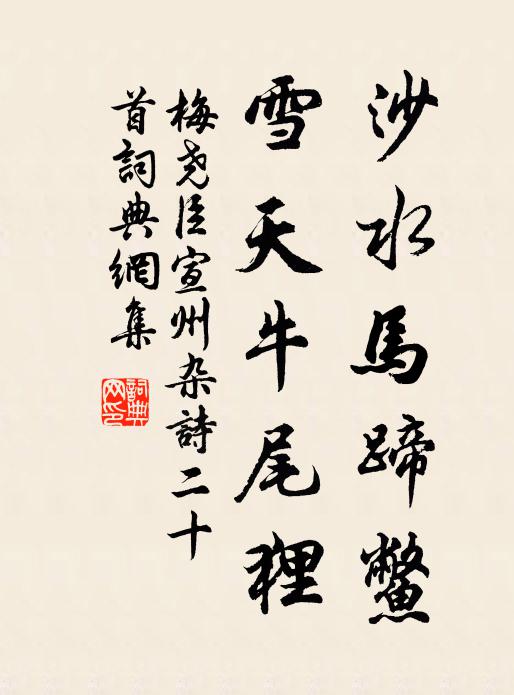 沙水馬蹄鱉
雪天牛尾狸
梅尧臣宣州杂詩二十
首詞典網集
詞典网印